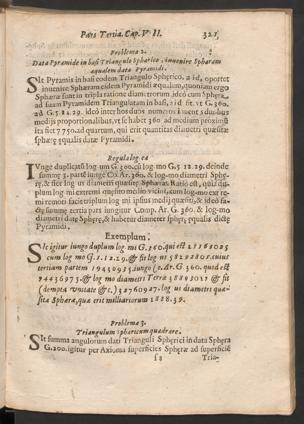 Pars Tertia. Cap. VII. 321
Problema 2.
Data Pyramide in basi Triangulo Spherico, invenire Spheram
æqualem datæ Pyramidi.
Sit Pyramis in basi eodem Triangulo Spherico, 2 id, oportet
invenire Spheram eidem Pyramidi æqualem, quoniam ergo
Spheræ sunt in tripla ratione diametrorum ideò cum Sphera
ad suam Pyramidem Triangulatam in basi, id fit. vt G. 360.
ad G. 5 12. 29. ideò inter hos duos numeros inveni duo bus
medijs proportionalibus, vt se habet 360 ad medium proximum
ita fiet 7750. ad quartum, qui erit quantitas diametri quæsitæ
spheræ æqualis datæ Pyramidi.
Regula log ca
Iunge duplicatū log-um G. 300. cū log-mo G. 5 12. 29. deinde
summę 3. partē iunge Cō Ar. 360. & log-mo diametri Sphe
ræ, & fiet log us diametri quæsitæ Sphæræ. Ratio est, quia du
plum log-mi extremi cum
remoti facit triplum log-mi ipsius medij quæsiti, & ideò fa-
summę tertia pars iungitur Comp. Ar. G. 360. & log-mo
diametri datæ Spheræ, & habetur diameter spheræ æqualis dictę
Pyramidi.
Exemplum.
Sic igitur iungo duplum log-mi G. 360. qui est 21163025
cum log-mo G. 5. 12. 29. & fit log-us 58292801. cuius
tertium partem 19430933. iungo Cō. Ar. G. 360. quod est
& log-mo diametri Terræ 38893021 & fit
(dempta Vnitate &c.) 32760927. log-us diametri quæ-
sitæ Spheræ, quæ erit milliariorum 1888. 39.
Problema 3.
Triangulum Sphericum quadrare.
Sit summa angulorum dati Trianguli Spherici in data Sphera
G. 200. igitur per Axioma superficies Spheræ ad superficiē
Tria-